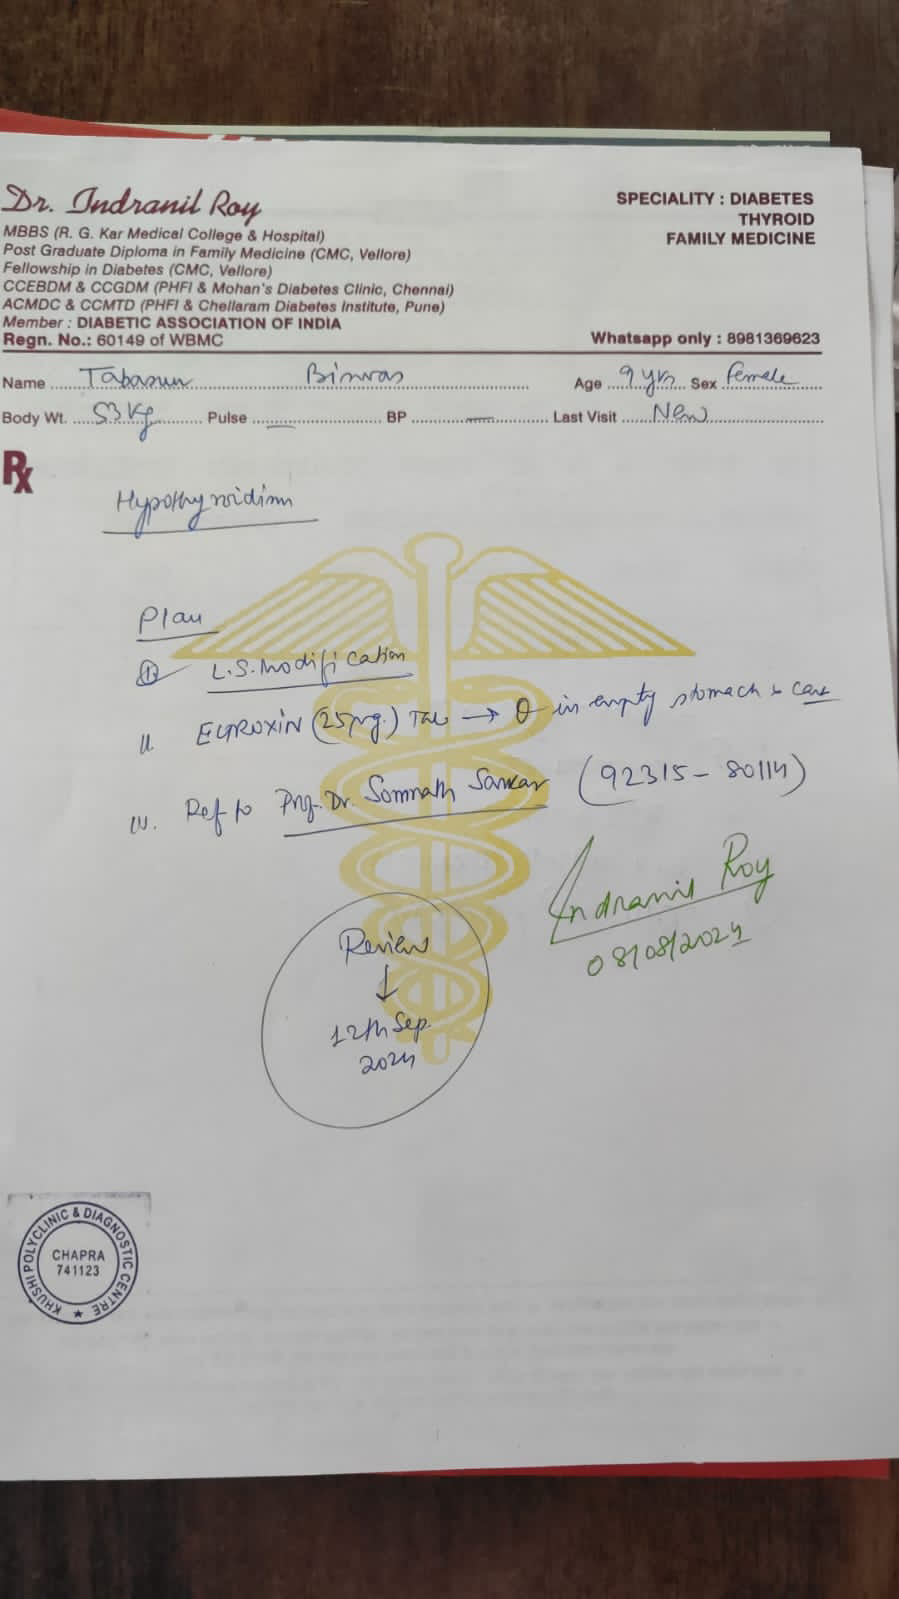 Dr. Indranil Roy
MBBS (R. G. Kar Medical College & Hospital)
Post Graduate Diploma in Family Medicine (CMC, Vellore)
Fellowship in Diabetes (CMC, Vellore)
CCEBDM & CCGDM (PHFI & Mohan's Diabetes Clinic, Chennai)
ACMDC & CCMTD (PHFI & Chellaram Diabetes Institute, Pune)
Member : DIABETIC ASSOCIATION OF INDIA
Regn. No.: 60149 of WBMC
SPECIALITY : DIABETES
THYROID
FAMILY MEDICINE
Whatsapp only : 8981369623
Name Tabasun Biswas Age 9 yrs Sex Female
Body Wt. 53 kg Pulse — BP — Last Visit New
Rx
Hypothyroidism
Plan
I L.S. Modification
II. (25µg.) Tab → in empty stomach
III. Ref to Prof. Dr. Somnath Sarkar (92315-80114)
Indranil Roy
08/08/2024
Review
↓
12th Sep.
2024
KHUSHI POLYCLINIC & DIAGNOSTIC CENTRE
CHAPRA
741123